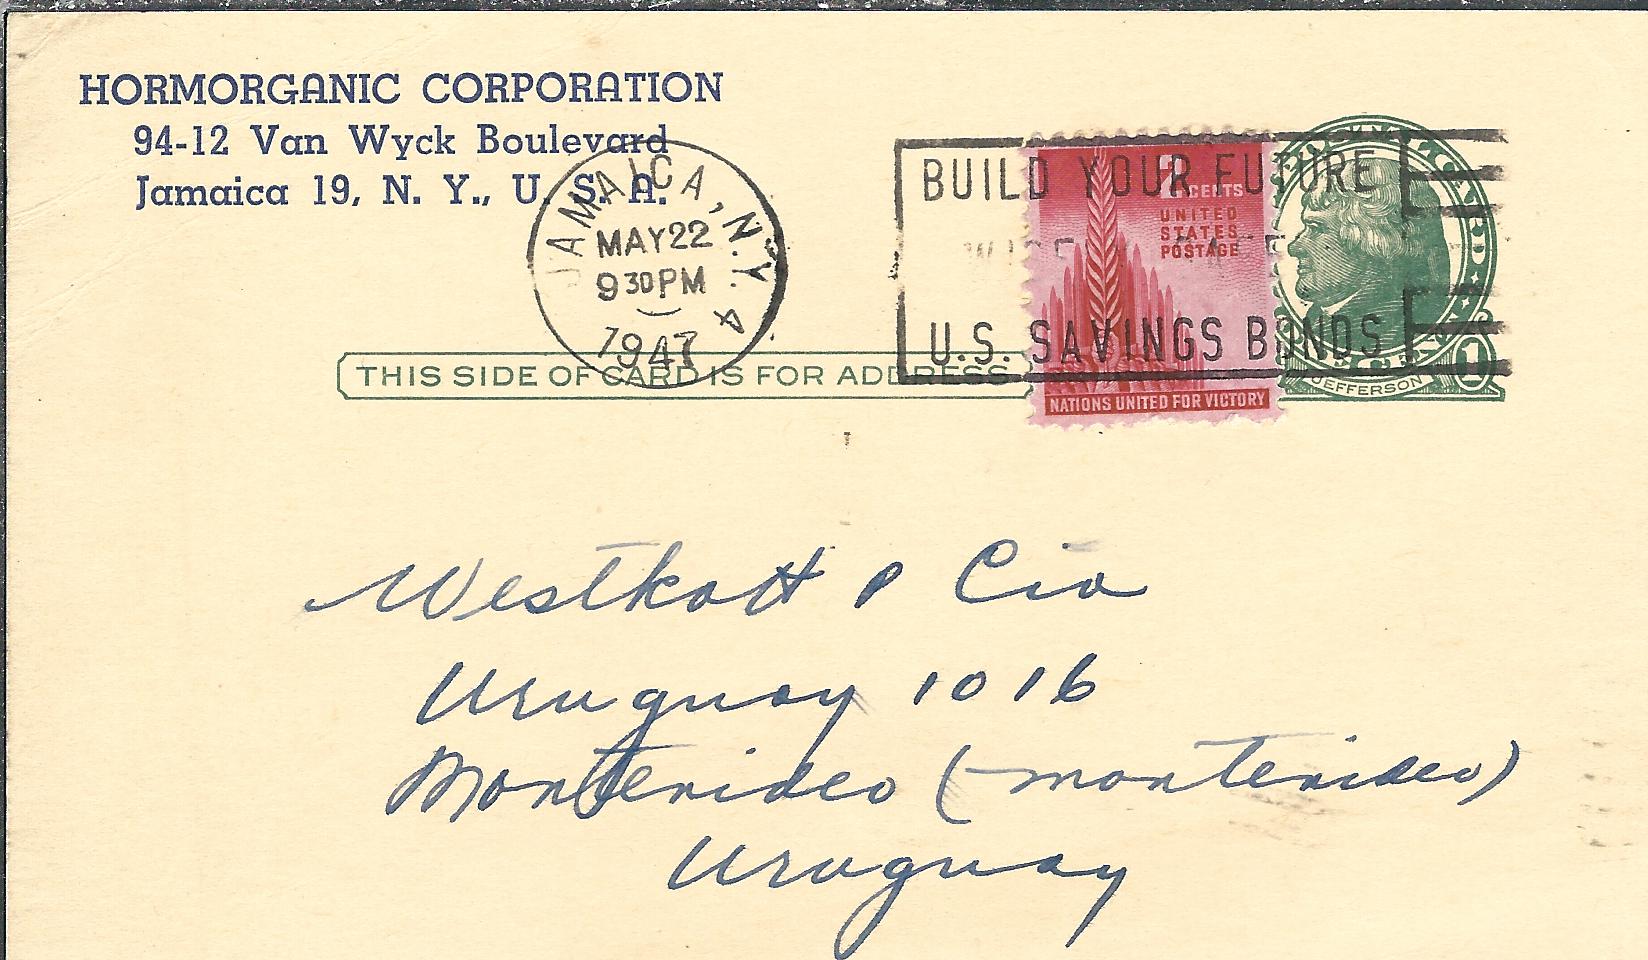 HORMORGANIC CORPORATION
94-12 Van Wyck Boulevard
Jamaica 19, N. Y., U. S. A.
JAMAICA, N.Y. 4
MAY 22
9 30 PM
1947
BUILD YOUR FUTURE
U.S. SAVINGS BONDS
2 CENTS
UNITED
STATES
POSTAGE
NATIONS UNITED FOR VICTORY
JEFFERSON
1
THIS SIDE OF CARD IS FOR ADDRESS
Westkott & Cia
Uruguay 1016
Montevideo (Montevideo)
Uruguay